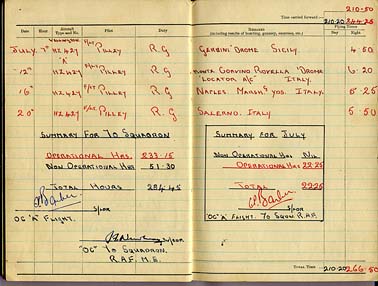 210·50
Time carried forward:— 210·20 244·25
Date Hour Aircraft Type and No. Pilot Duty REMARKS Flying Times
(including results of bombing, gunnery, exercises, etc.) Day Night
JULY. 7th HZ.427 F/Lt PILLEY R.G GERBINI 'DROME SICILY. 4·50
'A'
" 12th HZ.427 F/Lt PILLEY R.G MONTE CORVINO ROVELLA 'DROME 6·20
'LOCATOR A/C' ITALY.
" 16th HZ.427 F/Lt PILLEY R.G NAPLES MARSHG YDS. ITALY. 5·25
" 20th HZ.427 F/Lt. PILLEY R.G SALERNO. ITALY 5·50
SUMMARY FOR 70 SQUADRON
OPERATIONAL HRS. 233·15
NON OPERATIONAL HRS 51·30
TOTAL HOURS 284·45
S/LDR
OC "A" FLIGHT.
"OC" 70 SQUADRON.
R.A.F. M.E.
SUMMARY FOR JULY
NON OPERATIONAL HRS NIL
OPERATIONAL HRS 22·25
TOTAL 22·25
S/LDR
"OC "A" FLIGHT. 70 SQDN R.A.F.
TOTAL TIME 210·20 266·50